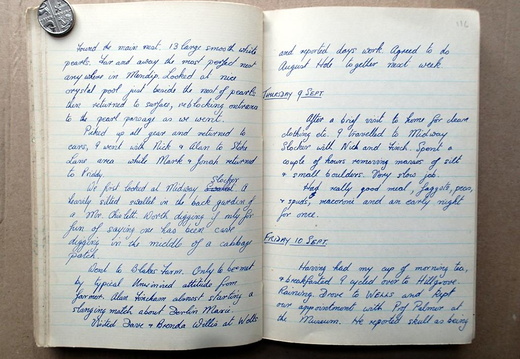 Found the main nest. 13 large smooth white
pearls. Far and away the most perfect nest
any where in Mendip. Looked at nice
crystal pool just beside the nest of pearls
then returned to surface, re-blocking entrance
to the pearl passage as we went.
Picked up all gear and returned to
cars, I went with Nick & Alan to Stoke
Lane area while Mark & Jonah returned
to Priddy.
We first looked at Midway Slocker
A heavily silted swallet in the back garden of
a Mr. Chislett. Worth digging if only for
fun of saying one has been cave
digging in the middle of a cabbage
patch.
Went to Blakes Farm. Only to be met
by typical attitude from
farmer. Alan almost starting a
slanging match about
Visited Dave & Brenda Willis at Wells
132
and reported days work. Agreed to do
August Hole together next week.
THURSDAY 9 SEPT
After a brief visit to home for clean
clothing etc. I travelled to Midway
Slocker with Nick and Finch. Spent a
couple of hours removing masses of silt
& small boulders. Very slow job.
Had really good meal, faggots, peas,
& spuds, & macaroni and an early night
for once.
FRIDAY 10 SEPT.
Having had my cup of morning tea,
& breakfasted I cycled over to Hillgrove.
Raining. Drove to WELLS and kept
our appointment with Prof Palmer at
the Museum. He reported skull as being